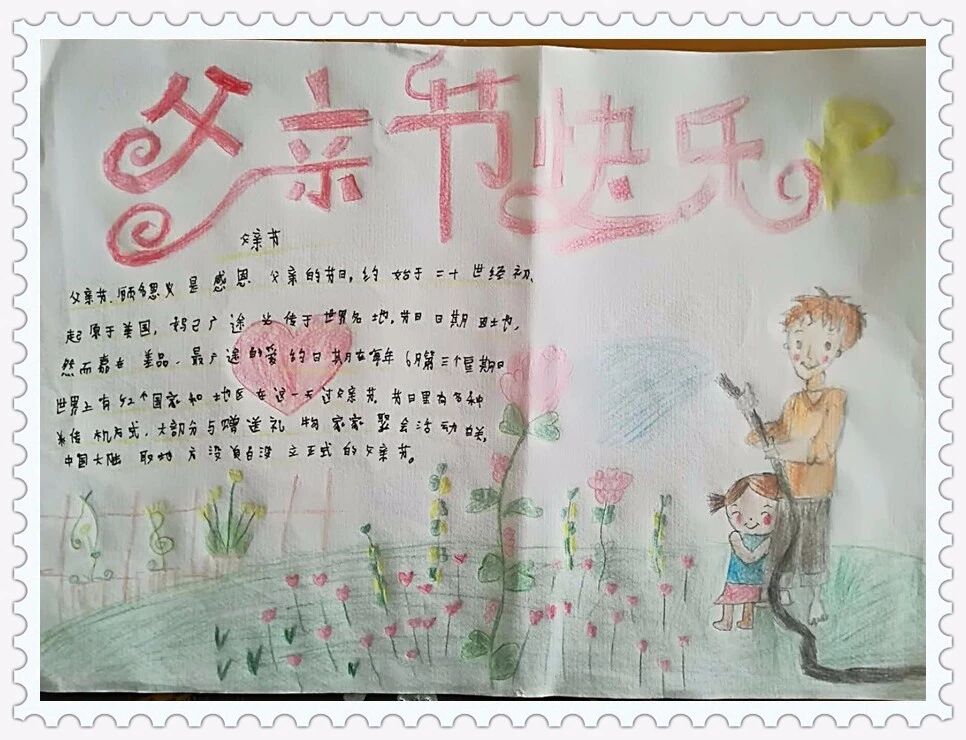 父亲节快乐
父亲节
父亲节,顾名思义 是 感恩 父亲的节日,约 始于 二十 世经初,
起 原于美国, 广 途 传于 世界各 地,节日 日期 因 地,
然而 最广途的 的日 期在每年 6月第三个星期日
世界上有52个国家和 地区在这一天过父亲节 节日里有多种
方式,大部分与赠送礼 物 家家 聚会活动 关,
中国大陆 方没有 立正式 的父亲节。